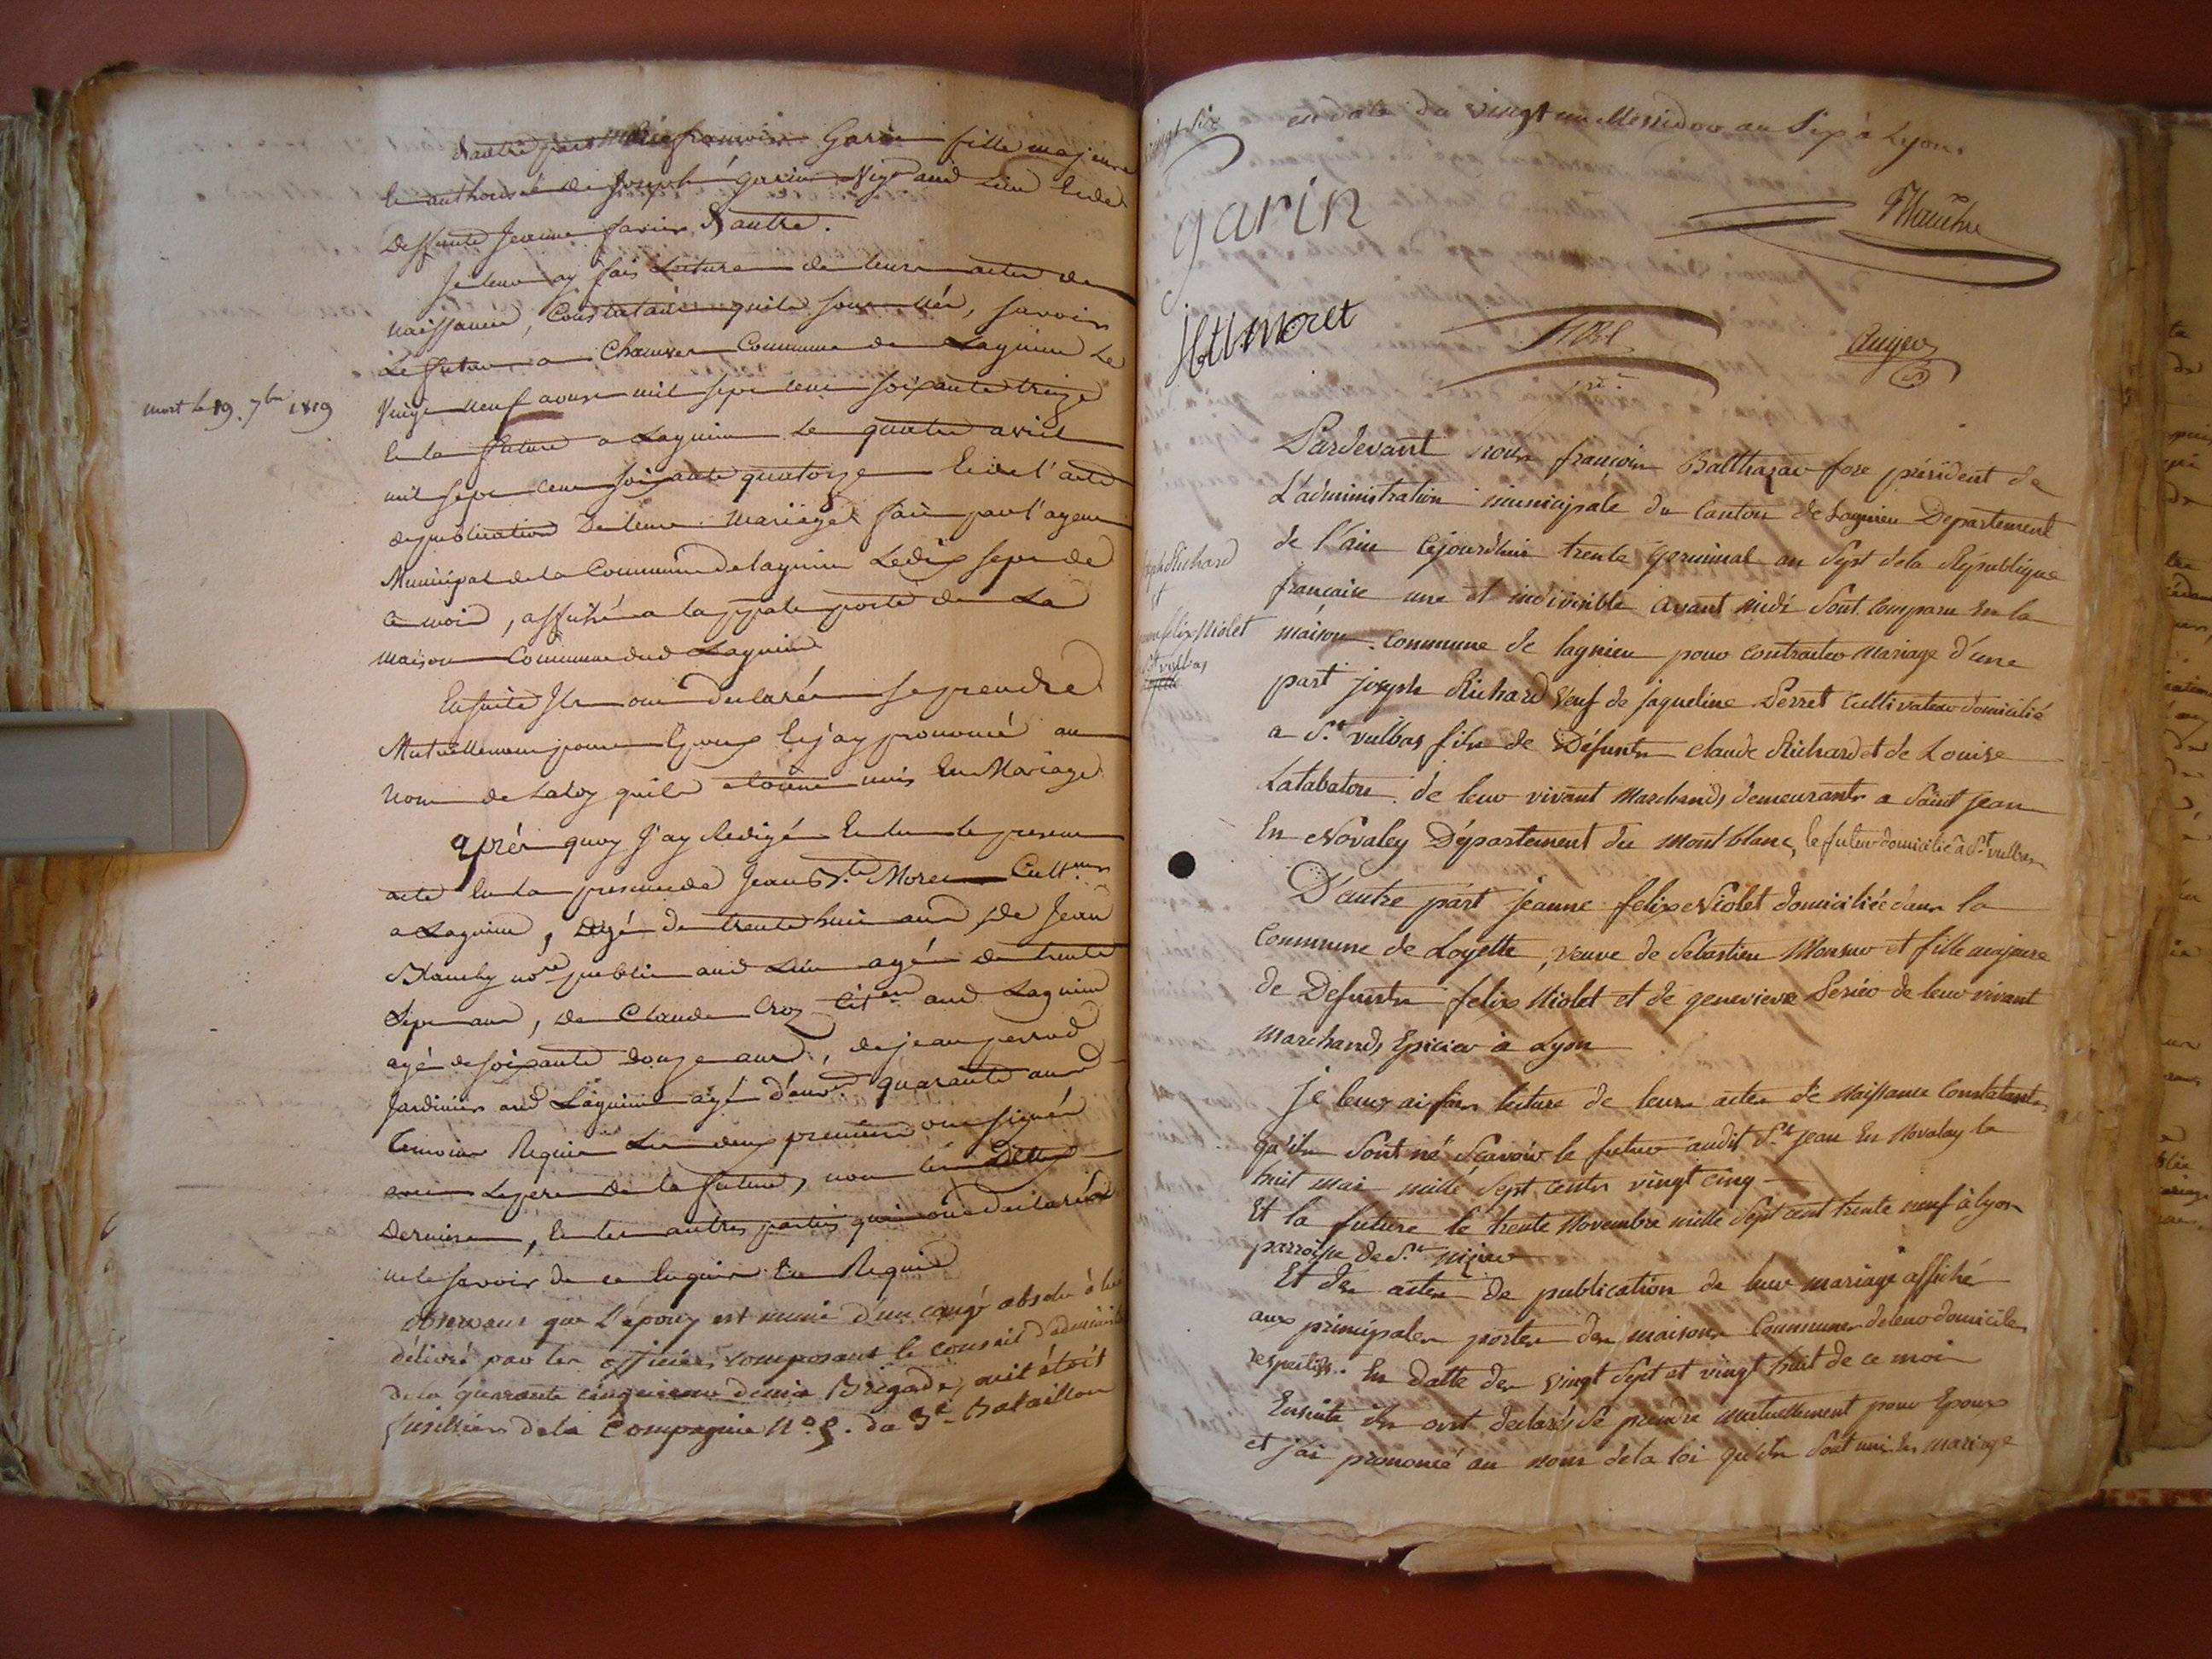 d'autre part marie françoise Garin fille majeure
et authorisé de Joseph garin Vigr aud Lieu et de
Deffunte Jeanne D'autre.
Je leur ay fais Lecture de leurs actes de
naissance, Constatants quils sont nés, savoir
Le futur a Commune de Lagnieu Le
vingt neuf aoust mil sept cent soixante treize
et la future a Lagnieu Le quatre avril
mil sept cent soixante quatorze et de l'acte
de publication De leur Mariage fait par l'agent
Municipal de la Commune de lagnieu Le dix sept de
ce mois, affiché a la ppale porte de La
maison Commune dud Lagnieu
mort le 19. 7bre 1819
Ensuite Ils ont declarés se prendre
Mutuellement pour Epoux et j'ay prononcé au
nom de La loy quils etoient unis En Mariage
Après quoy J'ay Redigé et lu le present
acte En la presence de Jean Bte Moret Cultr
a Lagnieu, agé de trente huit ans, de Jean
nore public aud Lieu agé de trente
Sept ans, de Claude Croz Citen aud Lagnieu
agé de soixante douze ans, de jean perrod
Jardinier aud Lagnieu agé d'env quarante ans
Temoins Requis Les deux premiers ont signés
avec Le pere de la future, non les Deux
Derniers, et les autres parties qui ont declarés
ne le savoir de ce Enquis et Requis
observant que L'époux est muni d'un congé absolu à lui
délivré par les officiers composant le conseil d'administ
de la quarante cinquieme demie Brigade, ou il étoit
fusillier de la Compagnie No 5. du 3e Bataillon
en date du vingt un Messidor an Six à Lyon.
vingt six
garin
JBtt Moret
fore
prt
Auger
Joseph Richard
et
jeanne felix Niolet
St vulbas
Loyette
Pardevant nous françois Balthazar fore président de
L'administration municipale du Canton de Lagnieu Departement
de l'ain Cejourdhui trente germinal an Sept de la République
francaise une et indivisible avant midi sont comparu En la
maison commune de lagnieu pour contracter mariage d'une
part joseph Richard veuf de jaqueline Perret Cultivateur domicilié
a St vulbas fils de Défunts claude Richard et de Louise
Latabatou de leur vivant Marchands demeurants a Saint jean
En Novaley Département du Mont blanc, le futur domicilié à St vulbas
D'autre part jeanne felix Niolet domiciliée dans la
Commune de Loyette, veuve de Sebastien et fille majeure
de Defunts felix Niolet et de genevieve de leur vivant
marchands Epicier à Lyon
je leurs ai fais lecture de leurs actes de Naissance Constatants
qu'ils sont né Scavoir le futur audit St jean En Novaley le
huit mai mille Sept cents vingt cinq
Et la future le trente Novembre mille Sept cent trente neuf à lyon
parroisse de St nizier
Et des actes de publication de leur mariage affiché
aux principales portes des maisons Communes de leur domicile
respectifs. En datte des vingt Sept et vingt huit de ce mois
Ensuite ils ont declarés se prendre mutuellement pour Epoux
et j'ai prononcé au nom de la loi qu'ils sont unis En mariage